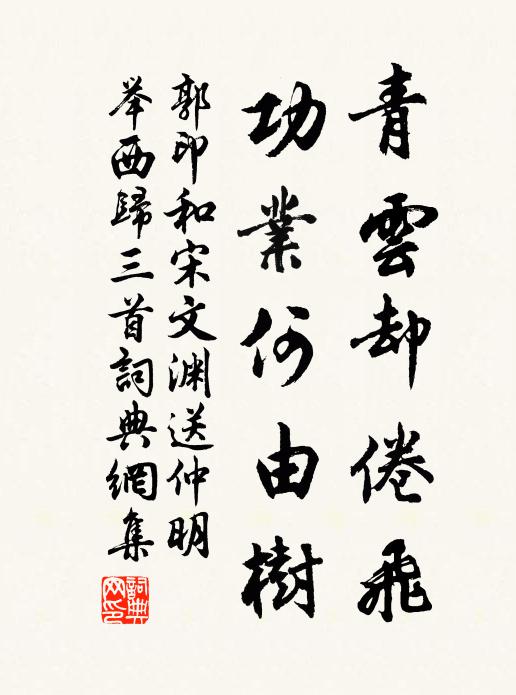 青雲却倦飛
功業何由樹
郭印和宋文渊送仲明
举西歸三首詞典網集
詞典網印